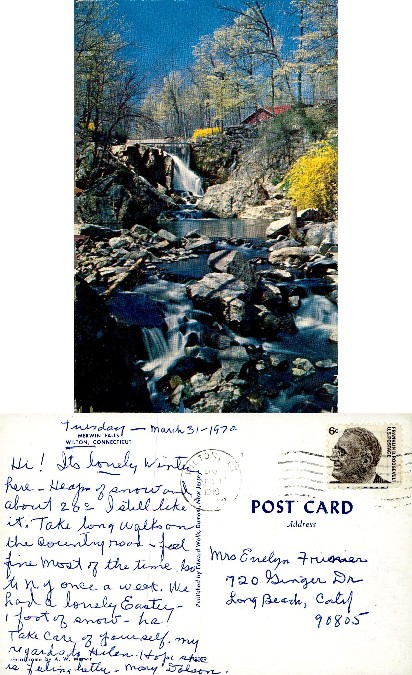 Tuesday - March 31-1970
MERWIN FALLS
WILTON, CONNECTICUT
Hi! Its lovely Winter
here - Heaps of snow and
about 28° I still like
it. Take long walks on
the Country road - feel
fine most of the time. Go
to N.Y once a week. We
had a lonely Easter -
1 foot of snow - ha!
Take Care of yourself. my
regards to Helen. Hope she
is feeling better - Mary Dolson.
POST CARD
Address
6c
FRANKLIN D. ROOSEVELT
U.S. POSTAGE
Mrs Evelyn
720 Ginger Dr
Long Beach, Calif
90805